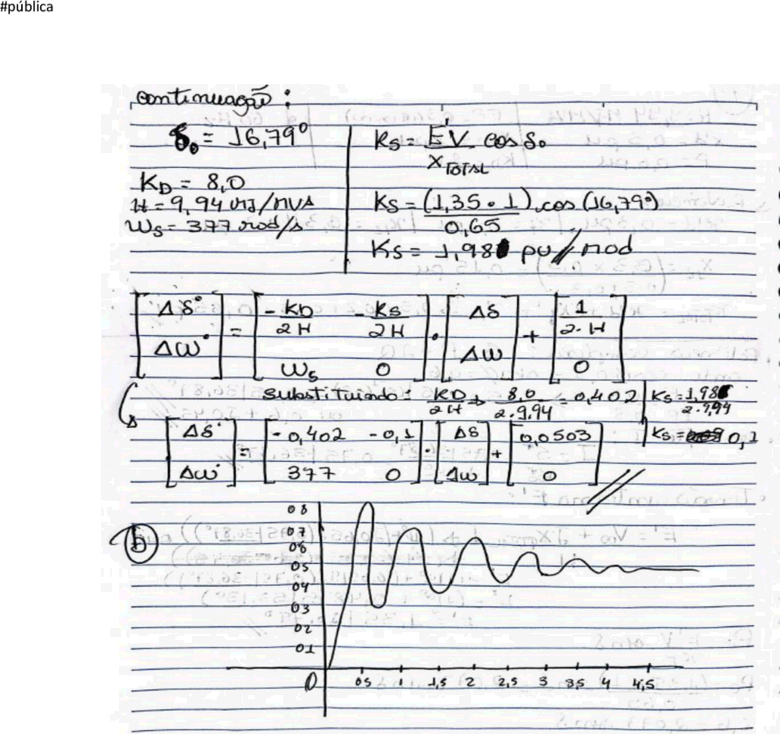 #pública
continuação:
δ₀ = 16,79°
K_D = 8,0
H = 9,94 MJ/MVA
W_S = 377 rad/s
K_S = E'V cos δ₀
X_TOTAL
K_S = (1,35 . 1) . cos (16,79°)
0,65
K_S = 1,98 pu/rad
[Δδ° Δω°] = [-K_D/2H -K_S/2H W_S 0] . [Δδ Δω] + [1/2.H 0]
substituindo: K_D/2H → 8,0/2.9,94 = 0,402 | K_S = 1,98/2.9,94
K_S = 0,1
[Δδ° Δω°] = [-0,402 -0,1 377 0] . [Δδ Δω] + [0,0503 0]
b
0 8
0 7
0 6
0 5
0 4
0 3
0 2
0 1
0 0 5 1 1,5 2 2,5 3 3,5 4 4,5